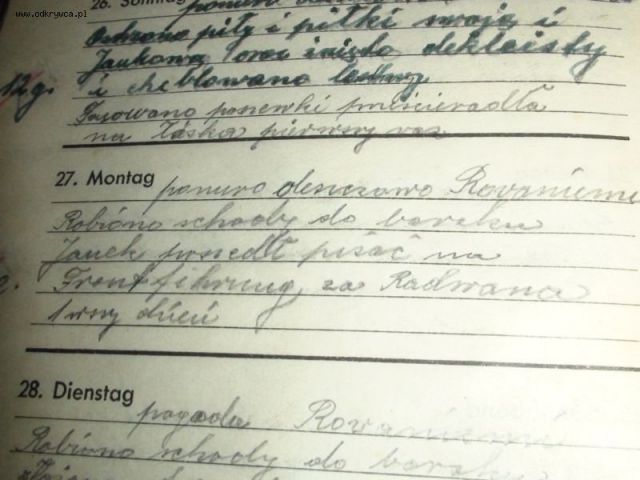 www.odkrywca.pl
26. Sonntag ponuro
Ostrzono piły i piłki swoją i
Jankową oraz
12 g. i cheblowano
Fasowano poszewki prześcieradła
na łóżka pierwszy raz
27. Montag ponuro deszczowo Rovaniemi
Robiono schody do baraku
Janek poszedł pisać na
Frontfihrung za Radwana
1wszy dzień
28. Dienstag
pogoda Rovaniemi
Robiono schody do baraku